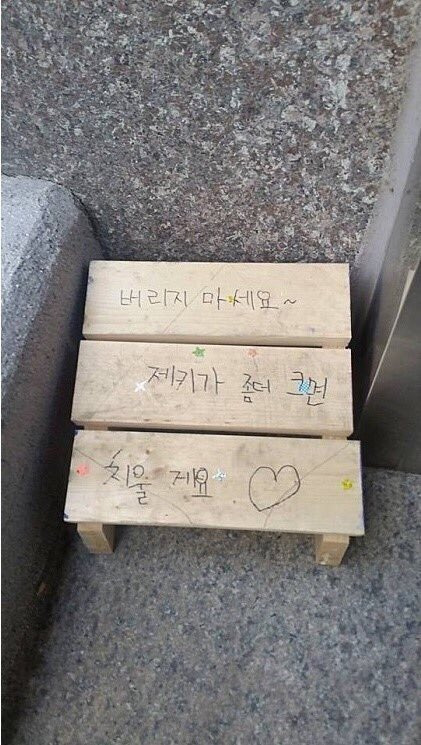 버리지 마세요~
제키가 좀더 크면
치울 게요 ♡